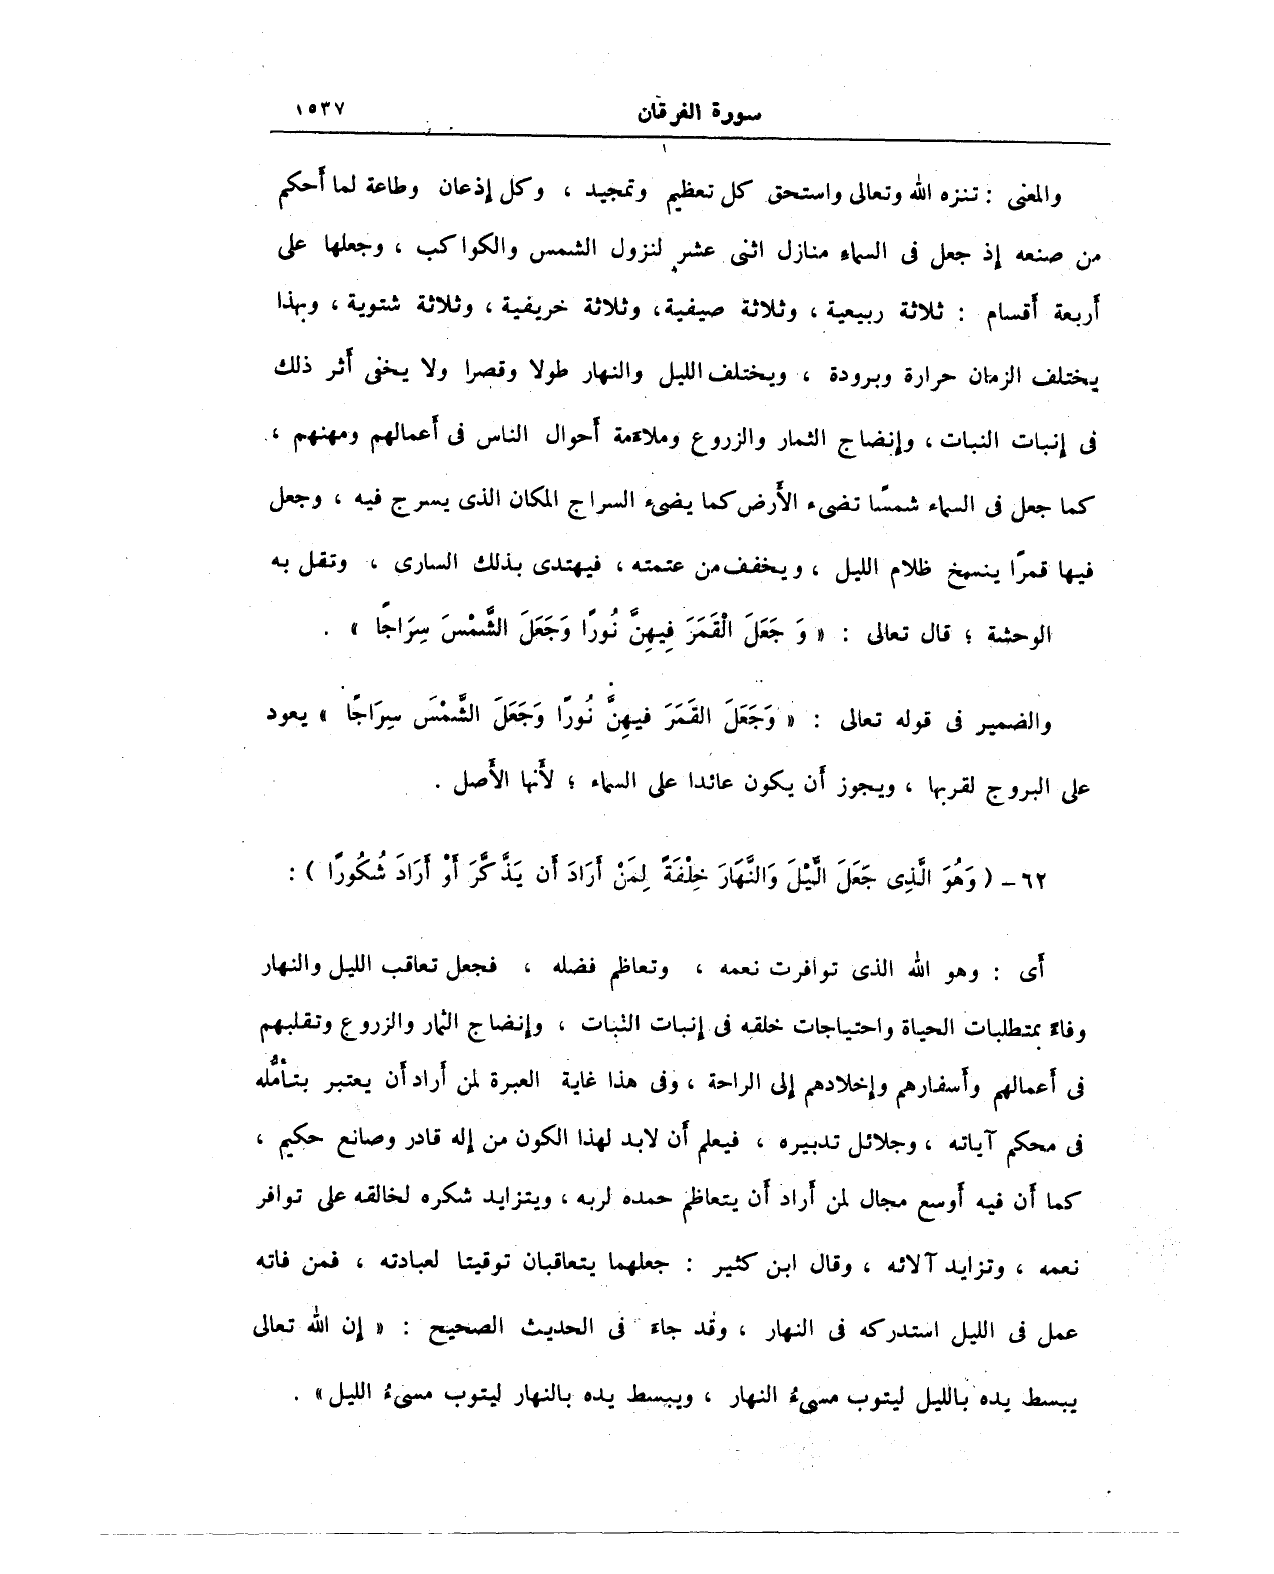 سورة الفرقان ١٥٣٧
والمعنى : تنزه الله وتعالى واستحق كل تعظيم وتمجيد ، وكل إذعان وطاعة لما أحكم
من صنعه إذ جعل فى السماء منازل اثنى عشر لنزول الشمس والكواكب ، وجعلها على
أربعة أقسام : ثلاثة ربيعية ، وثلاثة صيفية ، وثلاثة خريفية ، وثلاثة شتوية ، وبهذا
يختلف الزمان حرارة وبرودة ، ويختلف الليل والنهار طولا وقصرا ولا يخفى أثر ذلك
فى إنبات النبات ، وإنضاج الثمار والزروع وملاءمة أحوال الناس فى أعمالهم ومهنهم ،
كما جعل فى السماء شمسًا تضىء الأرض كما يضىء السراج المكان الذى يسرج فيه ، وجعل
فيها قمرًا ينسخ ظلام الليل ، ويخفف من عتمته ، فيهتدى بذلك السارى ، وتقل به
الوحشة ؛ قال تعالى : « وَ جَعَلَ الْقَمَرَ فِيهِنَّ نُورًا وَجَعَلَ الشَّمْسَ سِرَاجًا » .
والضمير فى قوله تعالى : « وَجَعَلَ القَمَرَ فيهِنَّ نُورًا وَجَعَلَ الشَّمْسَ سِرَاجًا » يعود
على البروج لقربها ، ويجوز أن يكون عائدا على السماء ؛ لأنها الأصل .
٦٢ - ( وَهُوَ الَّذِى جَعَلَ الَّيْلَ وَالنَّهَارَ خِلْفَةً لِمَنْ أَرَادَ أَن يَذَّكَّرَ أَوْ أَرَادَ شُكُورًا ) :
أى : وهو الله الذى توافرت نعمه ، وتعاظم فضله ، فجعل تعاقب الليل والنهار
وفاءً بمتطلبات الحياة واحتياجات خلقه فى إنبات النبات ، وإنضاج الثمار والزروع وتقلبهم
فى أعمالهم وأسفارهم وإخلادهم إلى الراحة ، وفى هذا غاية العبرة لمن أراد أن يعتبر بتأمُّله
فى محكم آياته ، وجلائل تدبيره ، فيعلم أن لابد لهذا الكون من إله قادر وصانع حكيم ،
كما أن فيه أوسع مجال لمن أراد أن يتعاظم حمده لربه ، ويتزايد شكره لخالقه على توافر
نعمه ، وتزايد آلائه ، وقال ابن كثير : جعلهما يتعاقبان توقيتا لعبادته ، فمن فاته
عمل فى الليل استدركه فى النهار ، وقد جاء فى الحديث الصحيح : « إن الله تعالى
يبسط يده بالليل ليتوب مسىءُ النهار ، ويبسط يده بالنهار ليتوب مسىءُ الليل » .